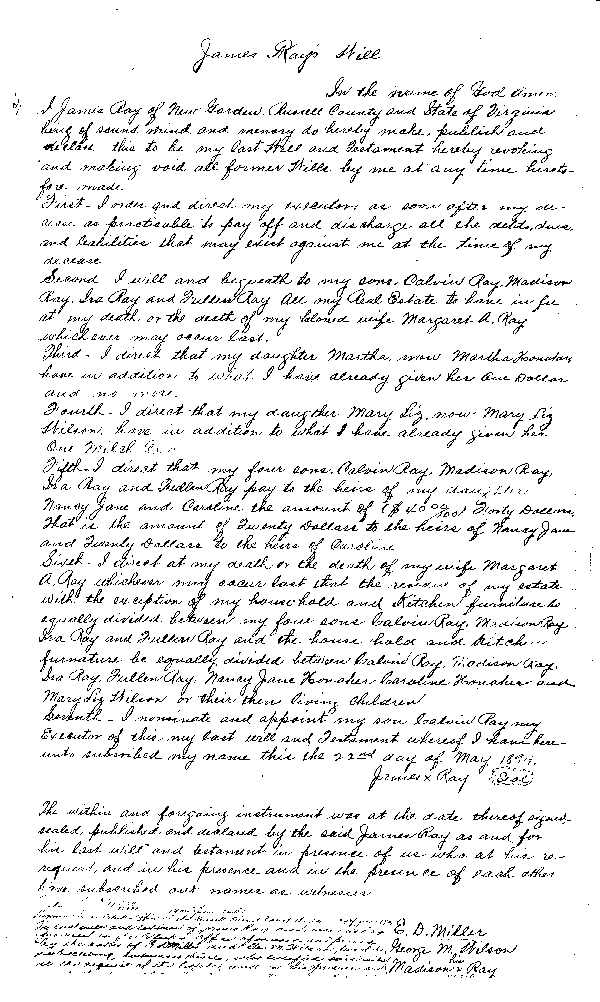 James Ray's Will
In the name of God Amen.
I James Ray of New Garden, Russell County and State of Virginia
being of sound mind and memory do hereby make, publish and
declare this to be my last Will and Testament hereby revoking
and making void all former Wills by me at any time hereto-
fore made.
First - I order and direct my executors as soon after my de-
cease as practicable to pay off and discharge all the debts, dues,
and liabilities that may exist against me at the time of my
decease
Second I will and bequeath to my sons. Calvin Ray, Madison
Ray, Ira Ray and Fullen Ray All my Real Estate to have in fee
at my death or the death of my beloved wife Margaret A. Ray
whichever may occur last.
Third - I direct that my daughter Martha, now Martha Honaker,
have in addition to what I have already given her One Dollar
and no more.
Fourth - I direct that my daughter Mary Liz, now Mary Liz
Wilson, have in addition to what I have already given her
One Milch
Fifth - I direct that my four sons, Calvin Ray, Madison Ray,
Ira Ray and Fullen Ray pay to the heirs of my daughter
Nancy Jane and Caroline the amount of ($40 00/100) Forty Dollars,
That is the amount of Twenty Dollars to the heirs of Nancy Jane
and Twenty Dollars to the heirs of Caroline
Sixth - I direct at my death or the death of my wife Margaret
A. Ray whichever may occur last that the residue of my estate
with the exception of my household and Kitchen furniture be
equally divided between my four sons Calvin Ray, Madison Ray
Ira Ray and Fullen Ray and the house hold and Kitch
furnature be equally divided between Calvin Ray, Madison Ray,
Ira Ray, Fullen Ray, Nancy Jane Honaker Caroline Honaker and
Mary Liz Wilson or their then living children
Seventh - I nominate and appoint my son Calvin Ray my
Executor of this my last will and Testament whereof I have here-
unto subscribed my name this the 22nd day of May
James x Ray Seal
The within and foregoing instrument was at the date thereof signed,
sealed, published, and declared by the said James Ray as and for
his last will and testament in presence of us who at his re-
quest, and in his presence and in the presence of each other
have subscribed our names as witnesses
E. D. Miller
George M Wilson
his
Madison x Ray